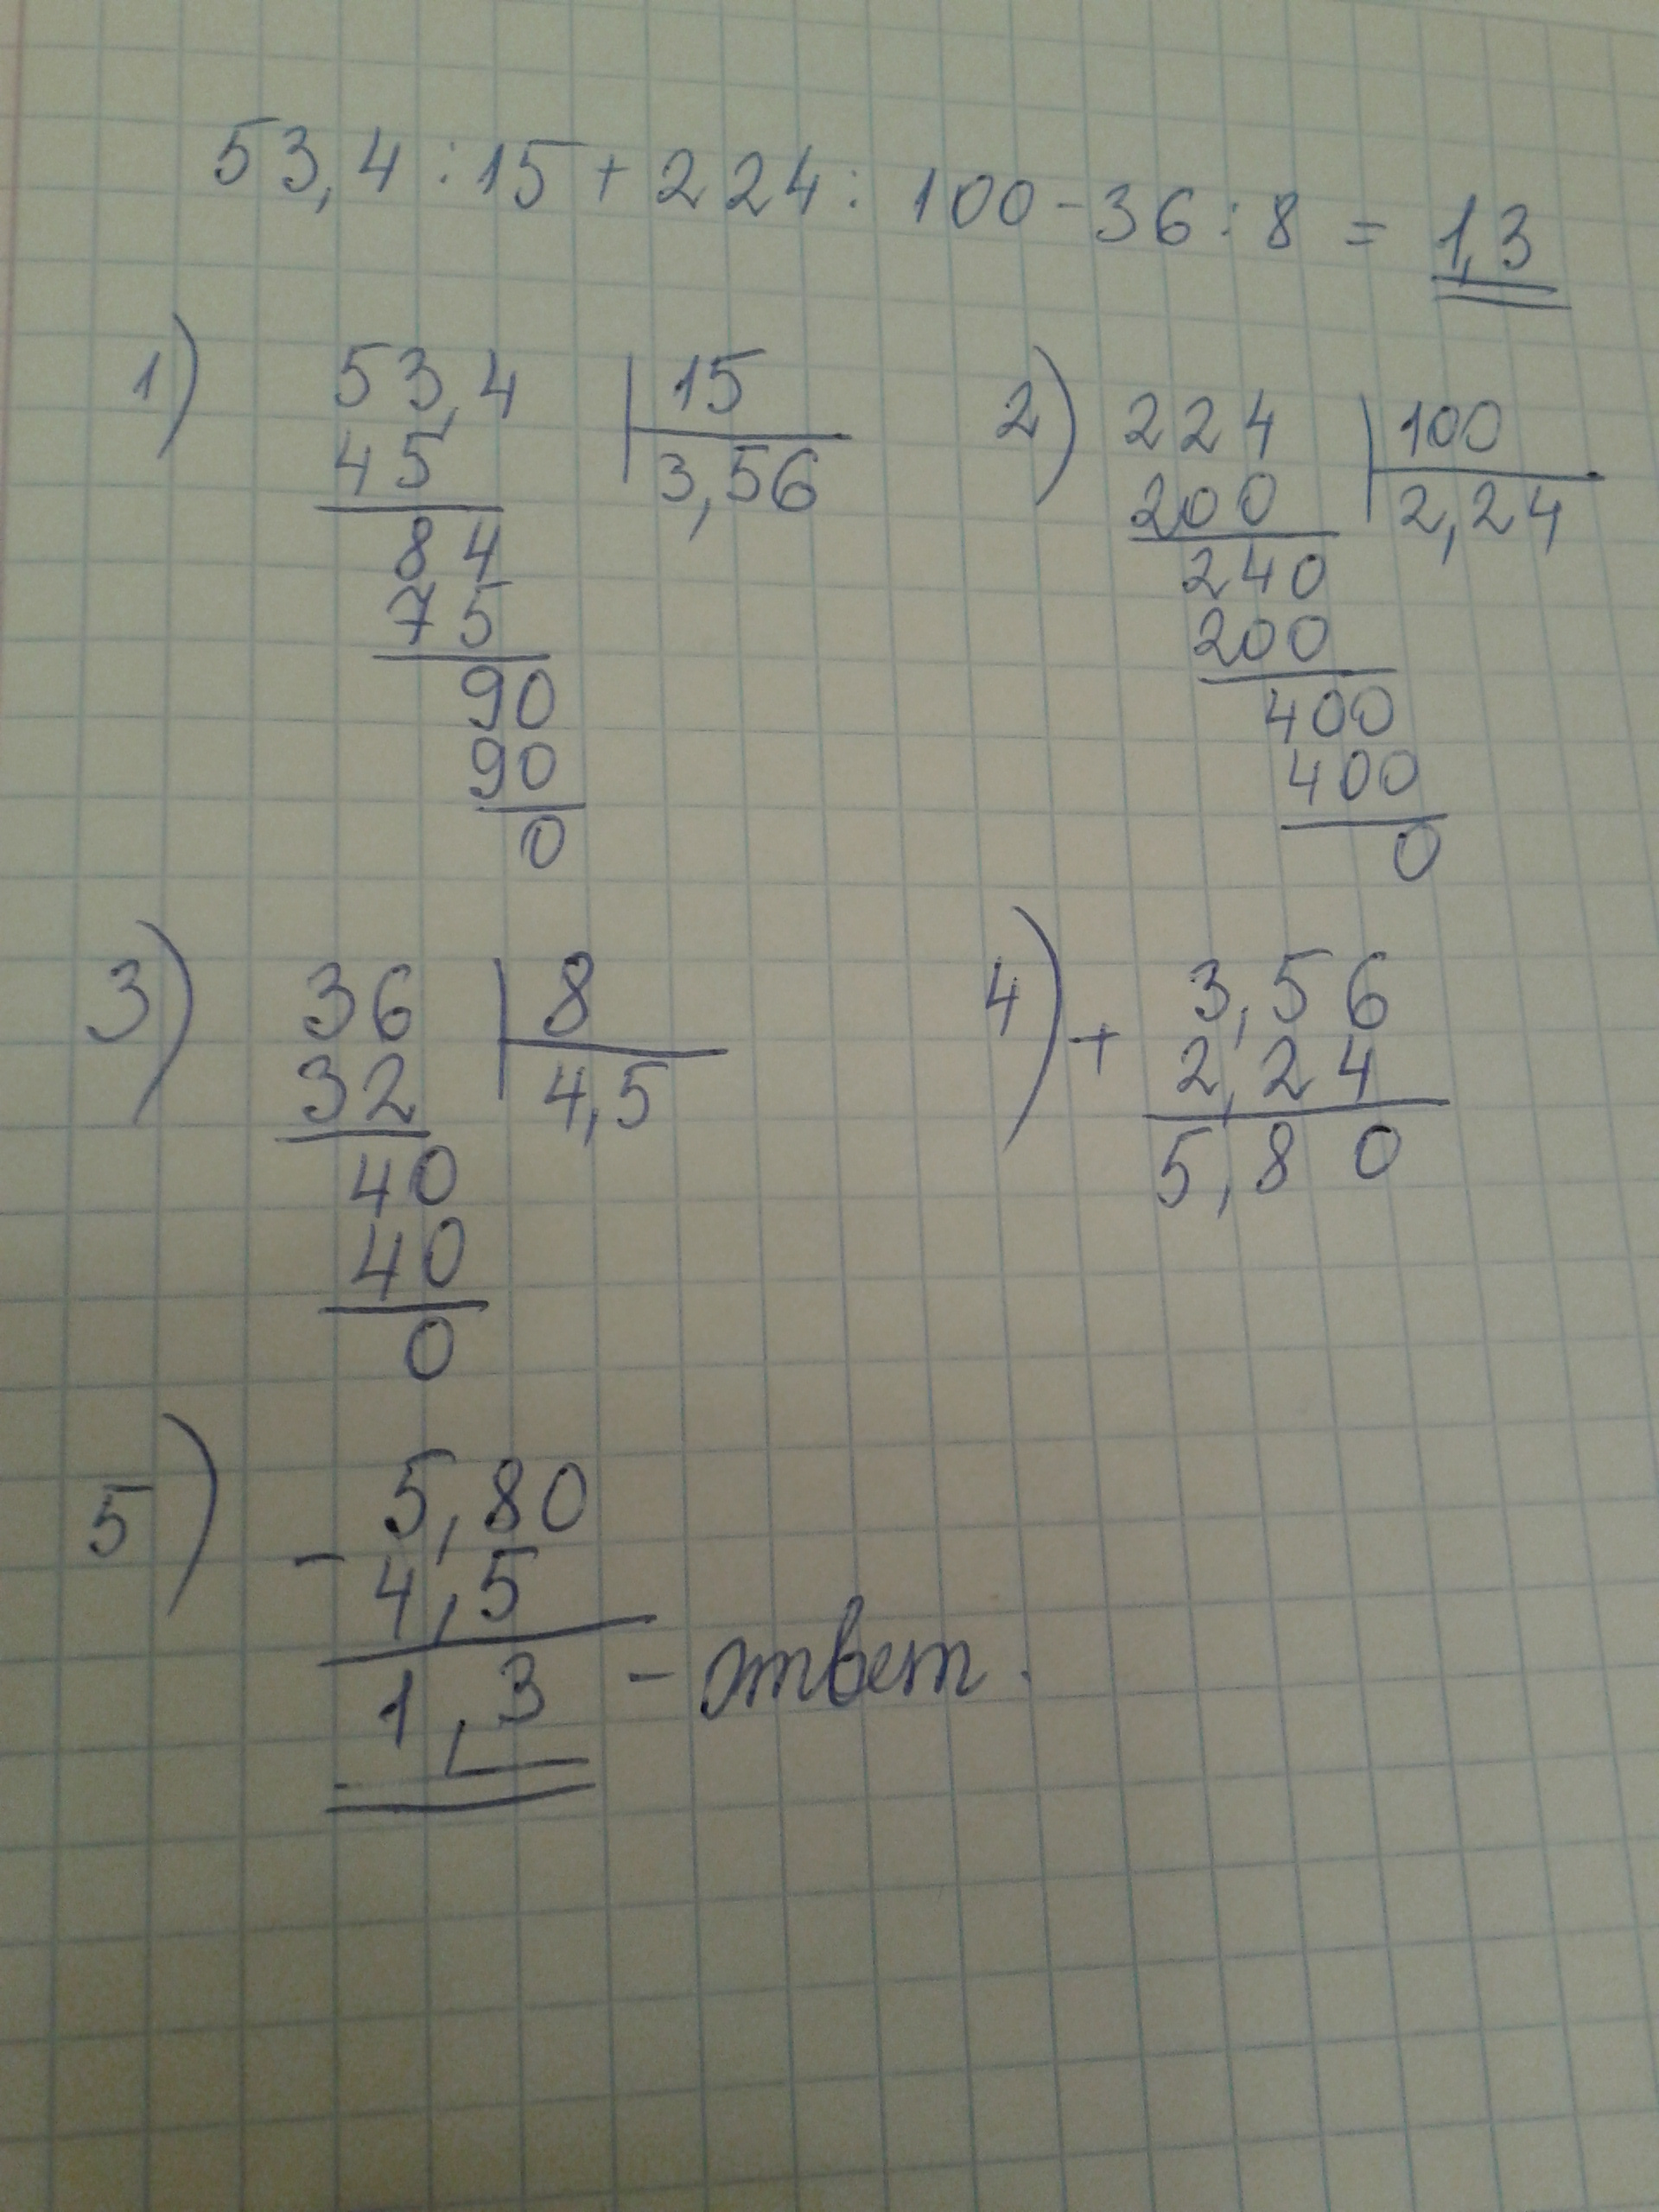 53,4 : 15 + 224 : 100 - 36 : 8 = 1,3
1) 53,4 | 15
45 3,56
84
75
90
90
0
2) 224 | 100
200 2,24
240
200
400
400
0
3) 36 | 8
32 4,5
40
40
0
4) + 3,56
2,24
5,80
5) - 5,80
4,5
1,3 - ответ.